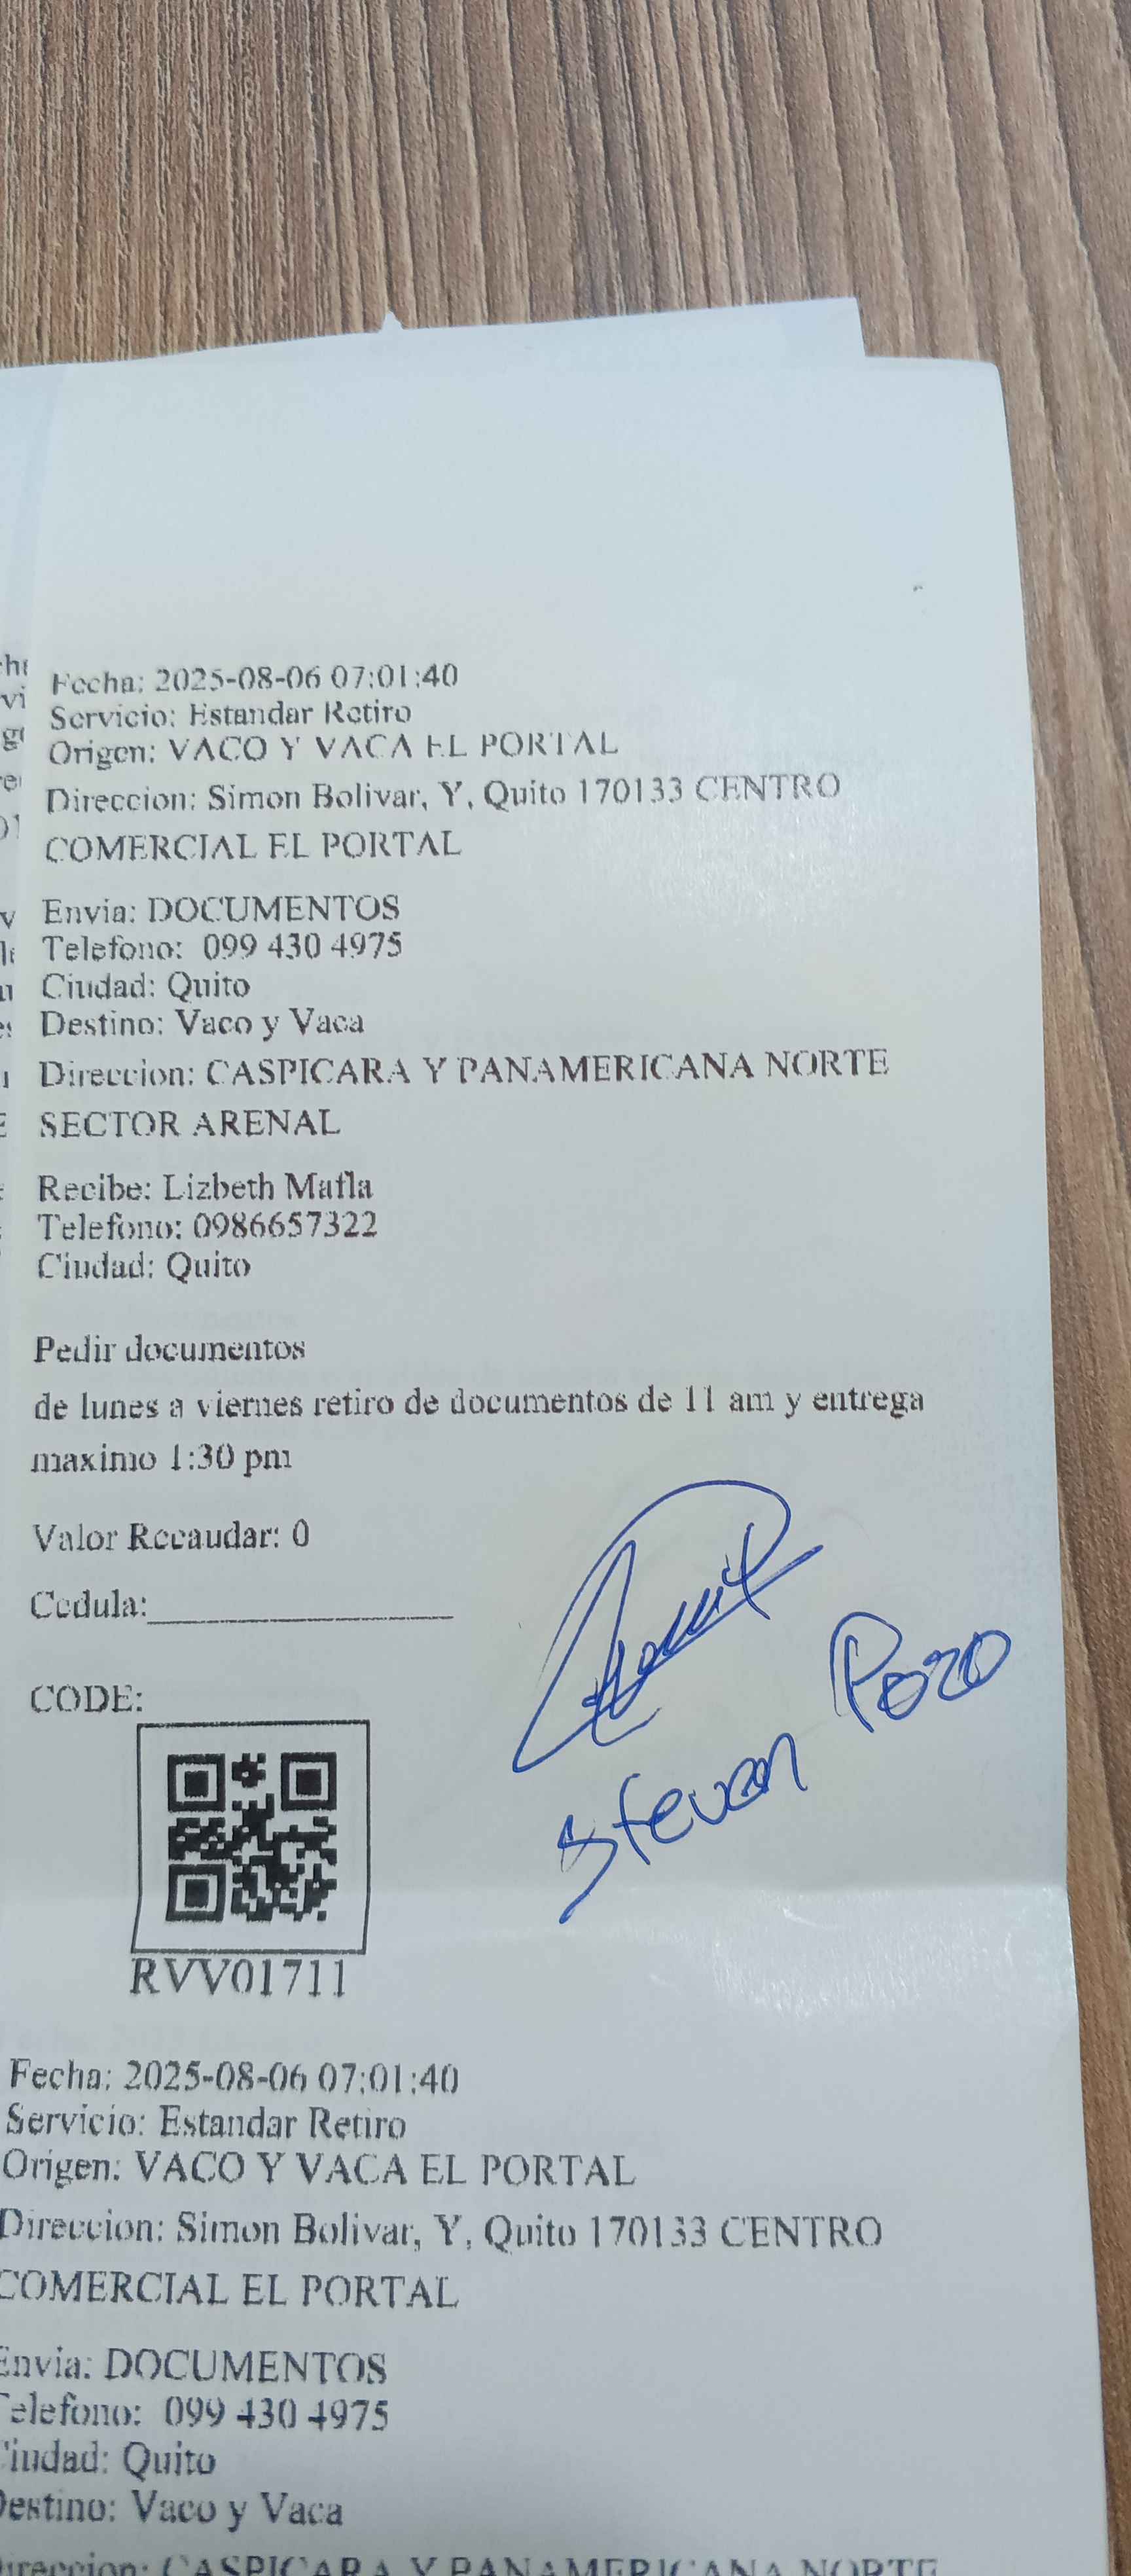 Fecha: 2025-08-06 07:01:40
Servicio: Estandar Retiro
Origen: VACO Y VACA EL PORTAL
Direccion: Simon Bolivar, Y, Quito 170133 CENTRO
COMERCIAL EL PORTAL
Envia: DOCUMENTOS
Telefono: 099 430 4975
Ciudad: Quito
Destino: Vaco y Vaca
Direccion: CASPICARA Y PANAMERICANA NORTE
SECTOR ARENAL
Recibe: Lizbeth Mafla
Telefono: 0986657322
Ciudad: Quito
Pedir documentos
de lunes a viernes retiro de documentos de 11 am y entrega
maximo 1:30 pm
Valor Recaudar: 0
Cedula:
Steven Pozo
CODE:
RVV01711
Fecha: 2025-08-06 07:01:40
Servicio: Estandar Retiro
Origen: VACO Y VACA EL PORTAL
Direccion: Simon Bolivar, Y, Quito 170133 CENTRO
COMERCIAL EL PORTAL
Envia: DOCUMENTOS
Telefono: 099 430 4975
Ciudad: Quito
Destino: Vaco y Vaca
Direccion: CASPICARA Y PANAMERICANA NORTE